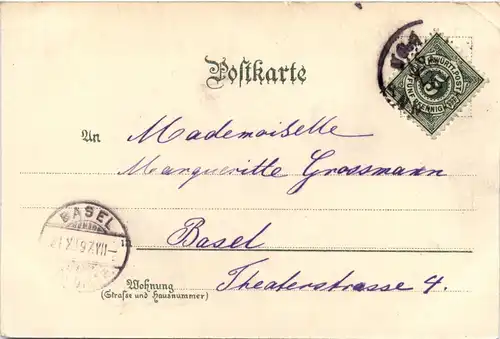 Postkarte
K. WÜRTT. POST
FÜNF PFENNIG
5
An Mademoiselle
Margueritte Grossmann
BASEL
Basel
Wohnung Theaterstrasse 4.
(Straße und Hausnummer)